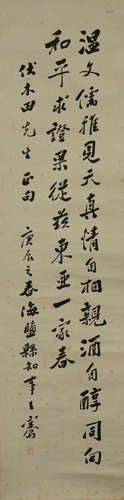 温文儒雅見天真情自相親酒自醇同向
和平求證果從茲東亞一家春
伏木田先生正句
庚辰之春海鹽縣知事王